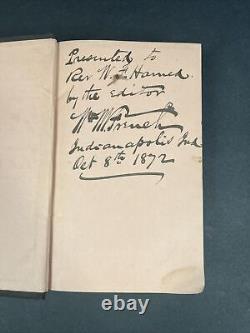 Presented to
Rev W. F. Harned
by the Editor
Wm M French
Indianapolis Ind
Oct 8th 1872